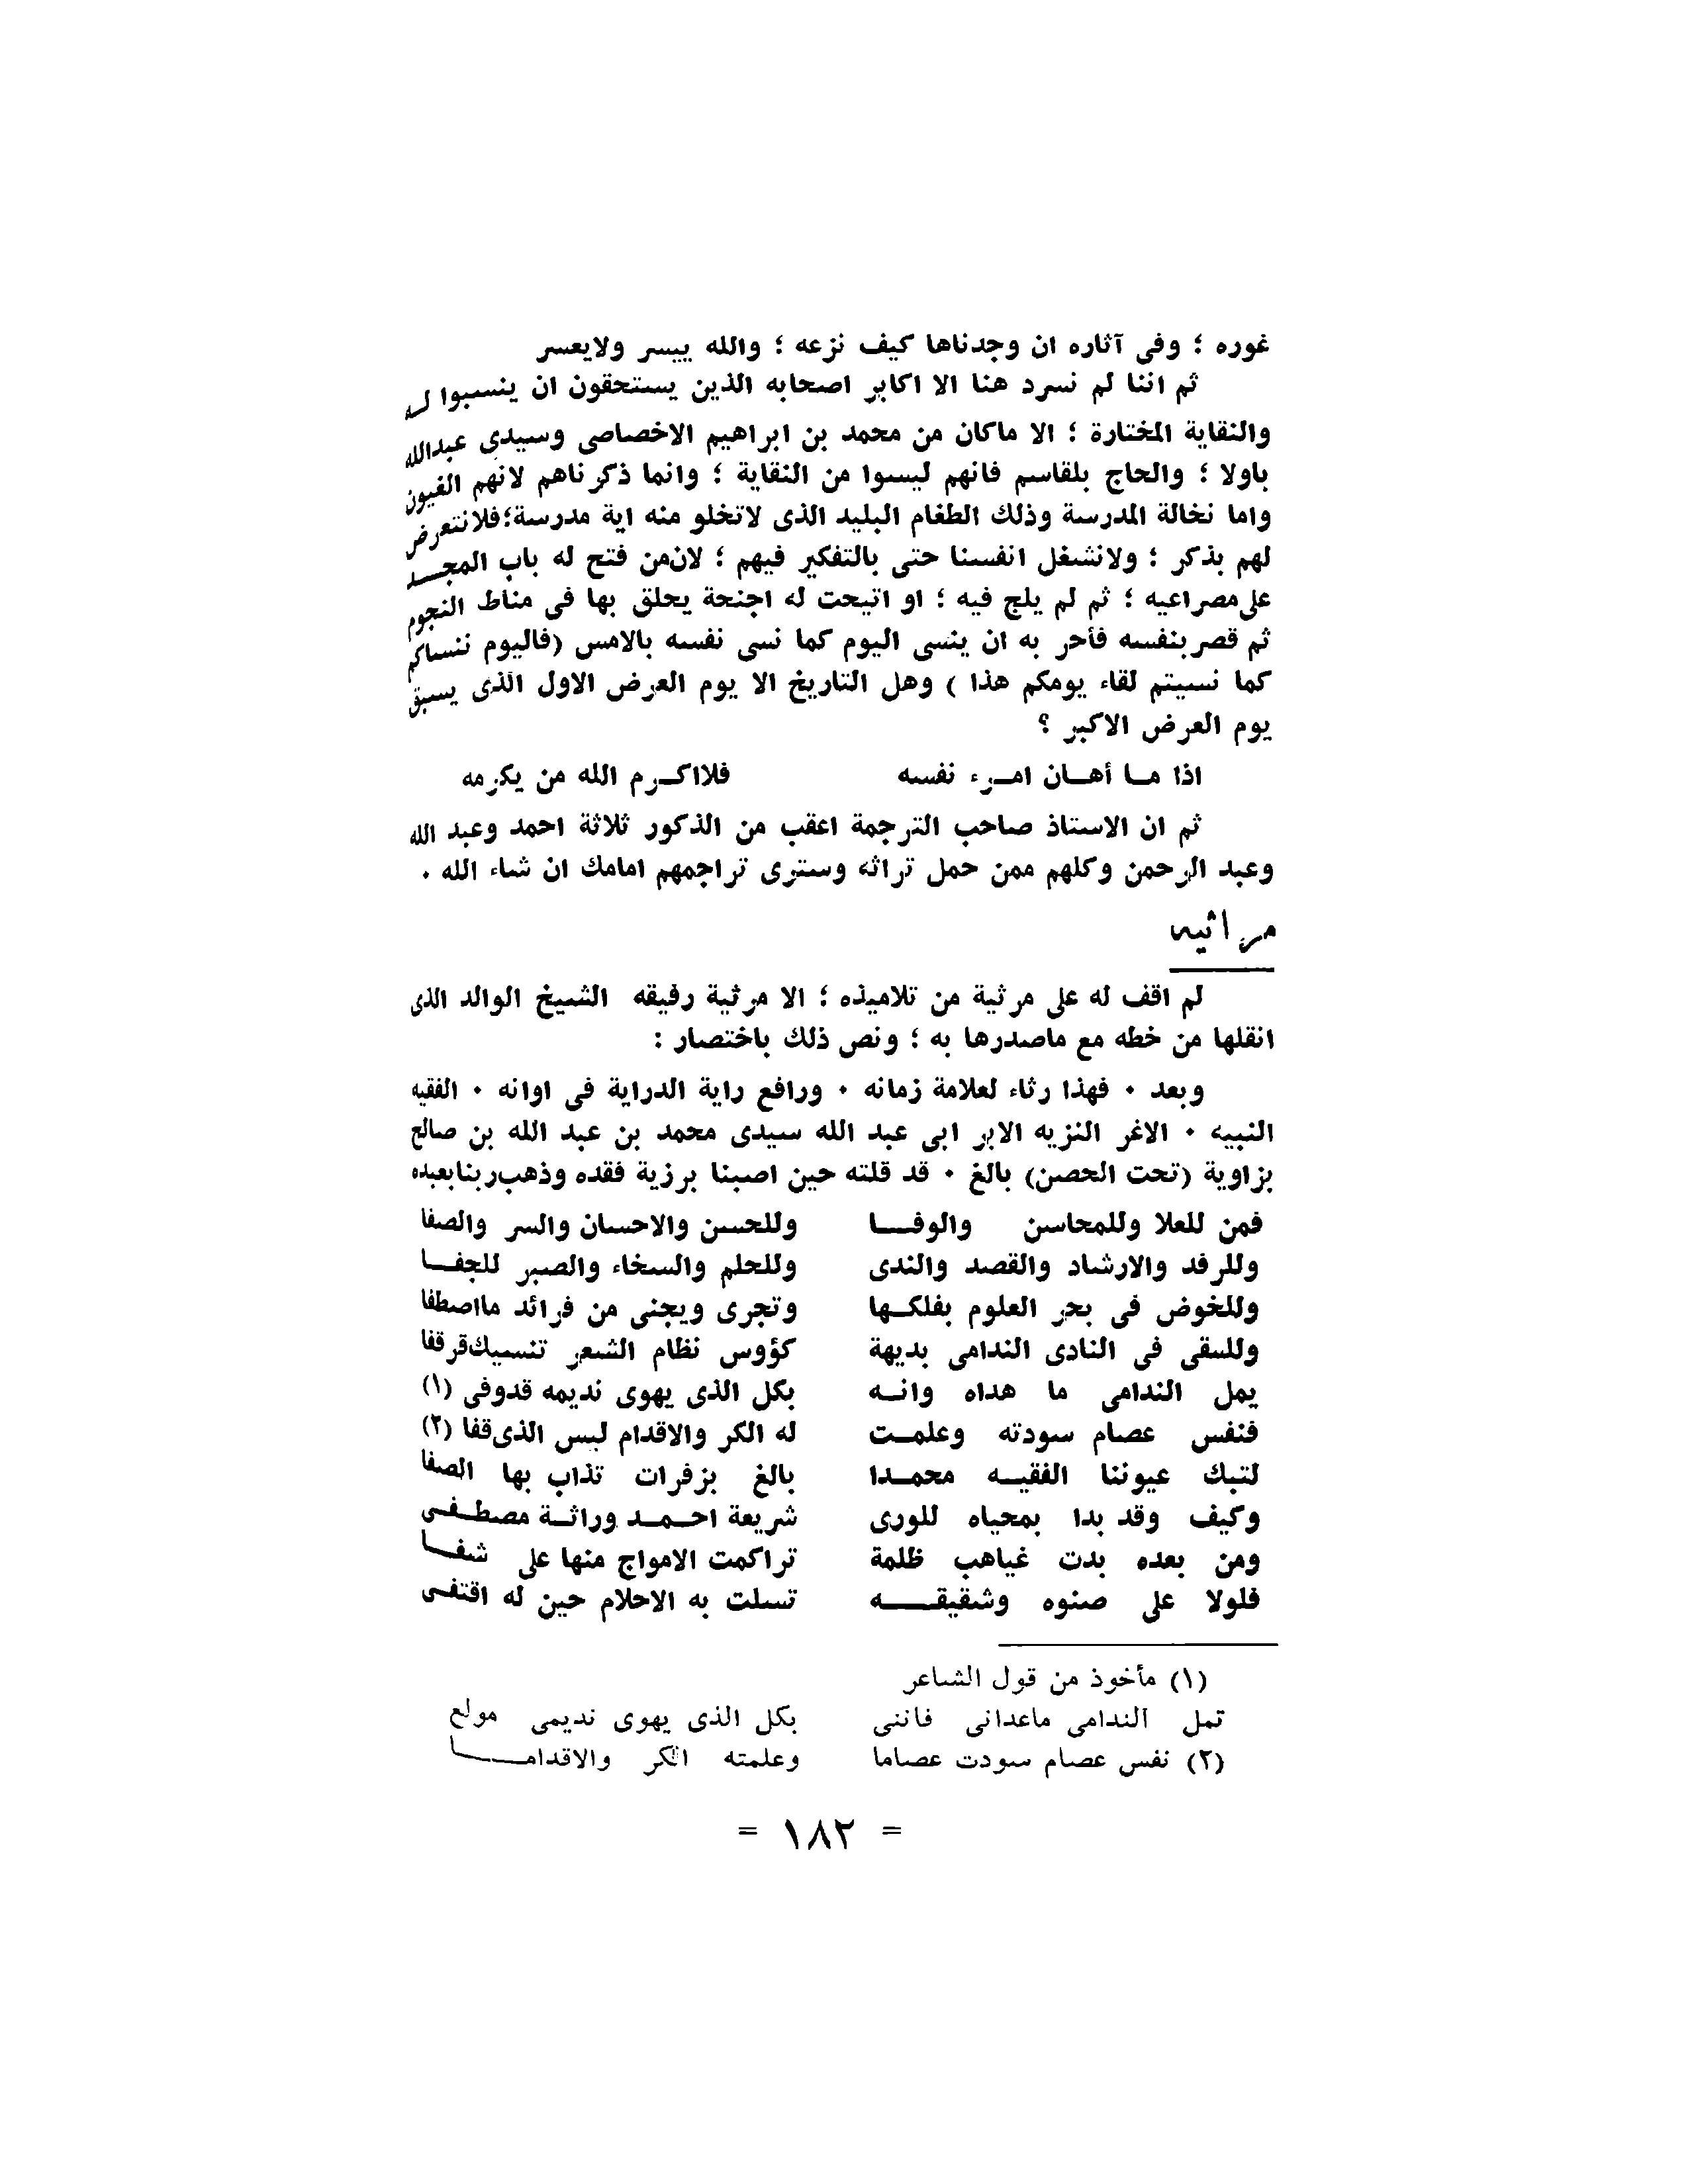 غوره ؛ وفى آثاره ان وجدناها كيف نزعه ؛ والله ييسر ولايعسر
ثم اننا لم نسرد هنا الا اكابر اصحابه الذين يستحقون ان ينسبوا لـه
والنقاية المختارة ؛ الا ماكان من محمد بن ابراهيم الاخصاصى وسيدى عبدالله
باولا ؛ والحاج بلقاسم فانهم ليسوا من النقاية ؛ وانما ذكرناهم لانهم الفيون
واما نخالة المدرسة وذلك الطغام البليد الذى لاتخلو منه اية مدرسة؛ فلانتعرض
لهم بذكر ؛ ولانشغل انفسنا حتى بالتفكير فيهم ؛ لان من فتح له باب المجـد
على مصراعيه ؛ ثم لم يلج فيه ؛ او اتيحت له اجنحة يحلق بها فى مناط النجوم
ثم قصر بنفسه فأحر به ان ينسى اليوم كما نسى نفسه بالامس (فاليوم ننساكم
كما نسيتم لقاء يومكم هذا ) وهل التاريخ الا يوم العرض الاول الذى يسبق
يوم العرض الاكبر ؟
اذا مـا أهـان امـرء نفسه فلااكـرم الله من يكرمه
ثم ان الاستاذ صاحب الترجمة اعقب من الذكور ثلاثة احمد وعبد الله
وعبد الرحمن وكلهم ممن حمل تراثه وسترى تراجمهم امامك ان شاء الله .
مراثيه
لم اقف له على مرثية من تلاميذه ؛ الا مرثية رفيقه الشيخ الوالد الذى
انقلها من خطه مع ماصدرها به ؛ ونص ذلك باختصار :
وبعد . فهذا رثاء لعلامة زمانه . ورافع راية الدراية فى اوانه . الفقيه
النبيه . الاغر النزيه الابر ابى عبد الله سيدى محمد بن عبد الله بن صالح
بزاوية (تحت الحصن) بالغ . قد قلته حين اصبنا برزية فقده وذهب ربنا بعبده
فمن للعلا وللمحاسن والوفـا وللحسن والاحسان والسر والصفا
وللرفد والارشاد والقصد والندى وللحلم والسخاء والصبر للجفـا
وللخوض فى بحر العلوم بفلكـها وتجرى ويجنى من فرائد مااصطفا
وللسقى فى النادى الندامى بديهة كؤوس نظام الشعر تنسيك قرقفا
يمل الندامى ما هداه وانـه بكل الذى يهوى نديمه قدوفى (١)
فنفس عصام سودته وعلمـت له الكر والاقدام ليس الذى قفا (٢)
لتبك عيوننا الفقيـه محمـدا بالغ بزفرات تذاب بها الصفا
وكيف وقد بدا بمحياه للورى شريعة احـمـد وراثـة مصطـفـى
ومن بعده بدت غياهب ظلمة تراكمت الامواج منها على شفـا
فلولا على صنوه وشقيقـــه تسلت به الاحلام حين له اقتفى
(١) مأخوذ من قول الشاعر
تمل الندامى ماعدانى فاننى بكل الذى يهوى نديمى مولع
(٢) نفس عصام سودت عصاما وعلمته الكر والاقدامــا
= ١٨٢ =